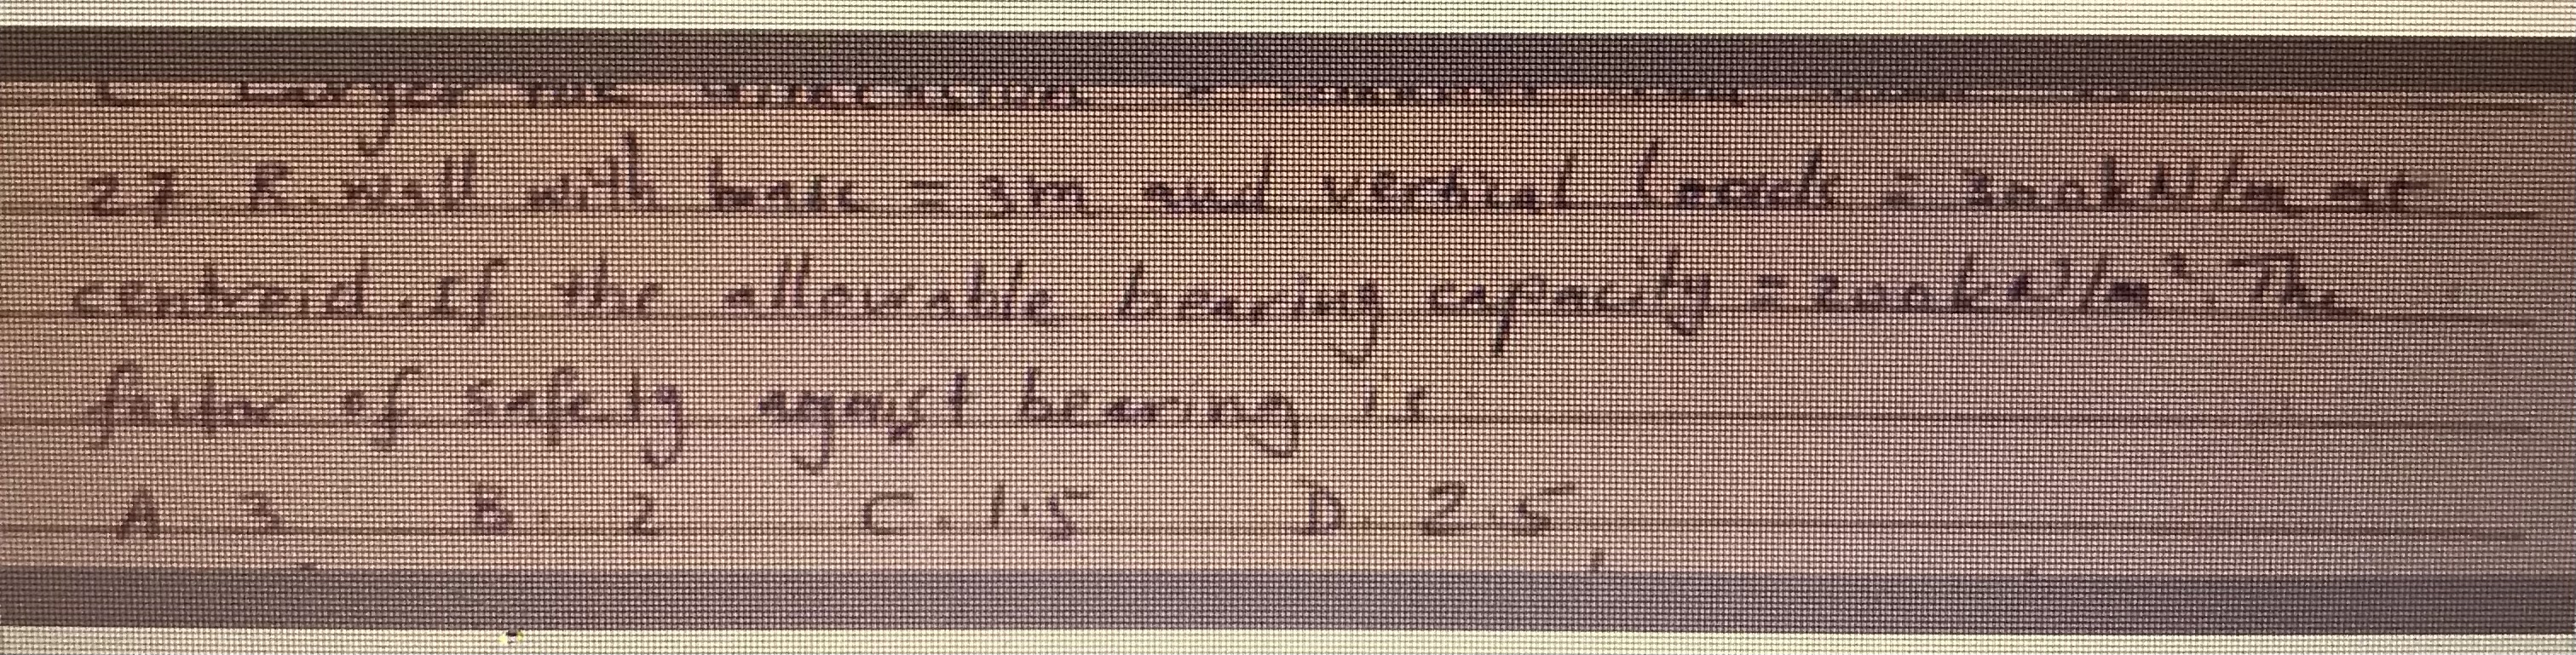 Larger the dimension
27 R. wall with base = 3m and vertical loads = 300kN/m at
centroid. If the allowable bearing capacity = 200kN/m². The
factor of safety against bearing is
A 3 B. 2 C. 1.5 D. 2.5